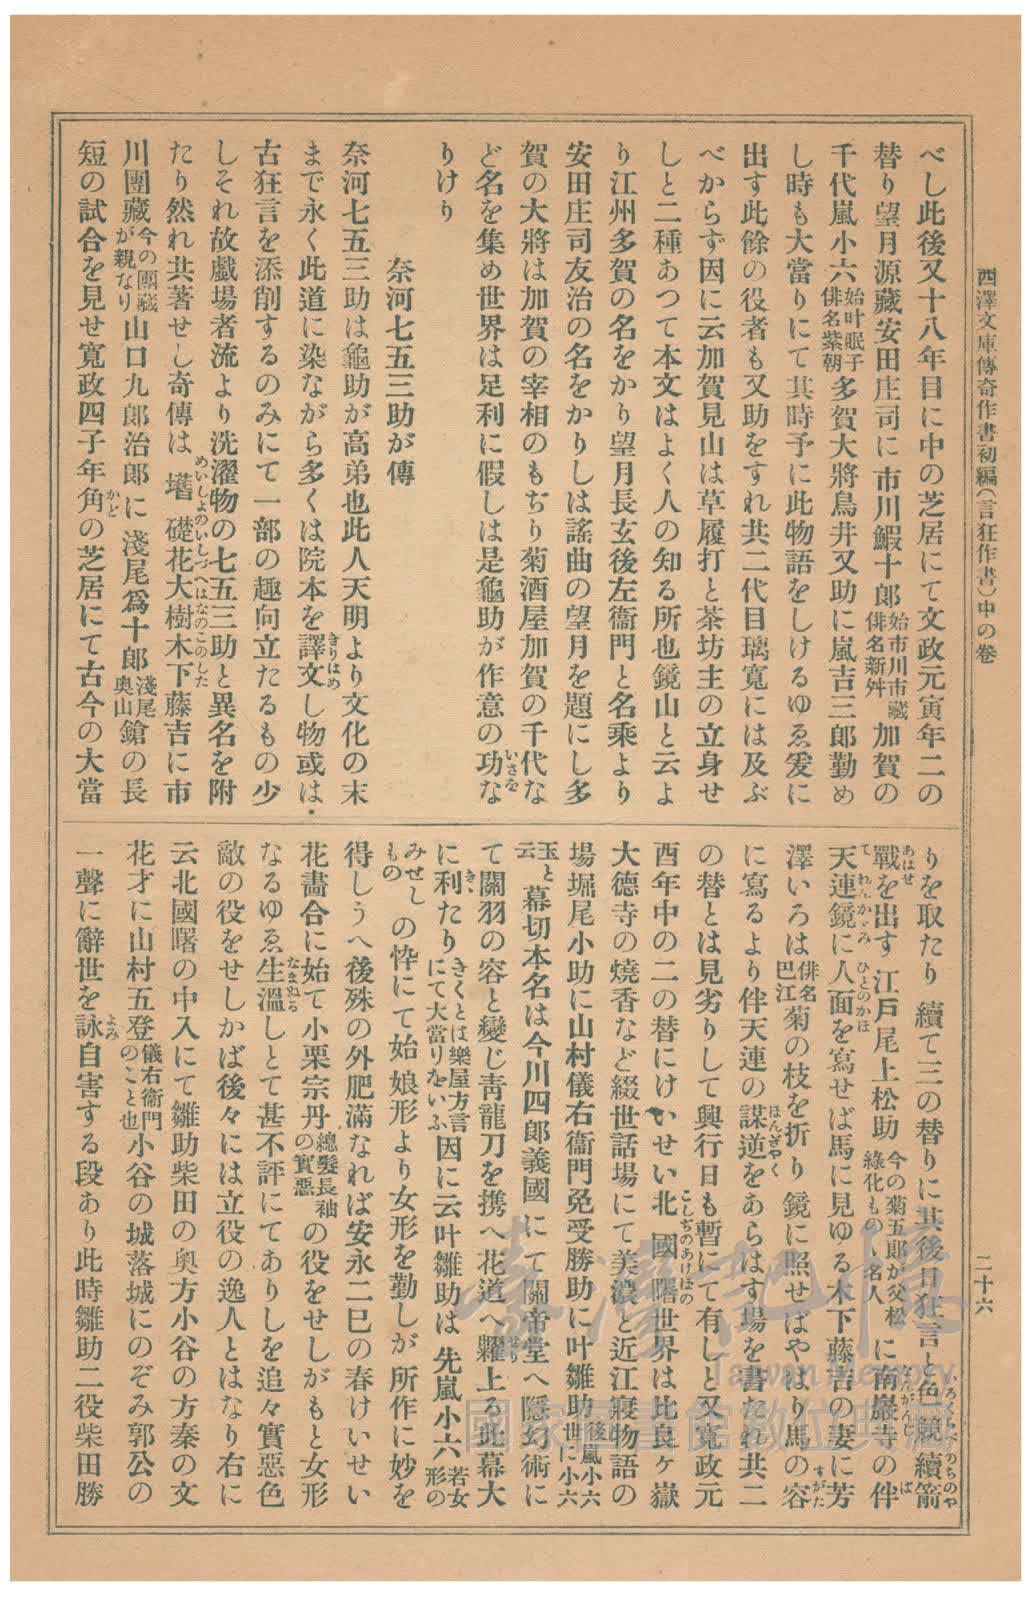 西澤文庫傳奇作書初編(言狂作書)中の卷
二十六
べし此後又十八年目に中の芝居にて文政元寅年二の
替り望月源藏安田庄司に市川鰕十郎始市川市藏俳名新舛加賀の
千代嵐小六始叶眠子俳名紫朝多賀大將鳥井又助に嵐吉三郎勤め
し時も大當りにて其時予に此物語をしけるゆゑ爰に
出す此餘の役者も又助をすれ共二代目璃寬には及ぶ
べからず因に云加賀見山は草履打と茶坊主の立身せ
しと二種あつて本文はよく人の知る所也鏡山と云よ
り江州多賀の名をかり望月長玄後左衞門と名乘より
安田庄司友治の名をかりしは謠曲の望月を題にし多
賀の大將は加賀の宰相のもぢり菊酒屋加賀の千代な
ど名を集め世界は足利に假しは是龜助が作意の功な
りけり
奈河七五三助が傳
奈河七五三助は龜助が高弟也此人天明より文化の末
まで永く此道に染ながら多くは院本を譯文し物或は
古狂言を添削するのみにて一部の趣向立たるもの少
しそれ故戲場者流より洗濯物の七五三助と異名を附
たり然れ共著せし奇傳は 礎花大樹木下藤吉に市
川團藏今の團藏が親なり山口九郎治郎に淺尾爲十郎淺尾奥山鎗の長
短の試合を見せ寬政四子年角の芝居にて古今の大當
りを取たり續て三の替りに其後日狂言と色競續箭
戰を出す江戸尾上松助今の菊五郎が父松綠化もの丶名人に南嚴寺の伴
天連鏡に人面を寫せば馬に見ゆる木下藤吉の妻に芳
澤いろは俳名巴江菊の枝を折り鏡に照せばやはり馬の容
に寫るより伴天連の謀逆をあらはす場を書たれ共二
の替とは見劣りして興行日も暫にて有しと又寬政元
酉年中の二の替にけいせい北國曙世界は比良ヶ嶽
大德寺の燒香など綴世話場にて美濃と近江寢物語の
場堀尾小助に山村儀右衞門免受勝助に叶雛助後嵐小六世に小六
玉と云幕切本名は今川四郎義國にて關帝堂へ隱幻術に
て關羽の容と變じ靑龍刀を携へ花道へ糶上る此幕大
に利たりきくとは樂屋方言にて大當りをいふ因に云叶雛助は先嵐小六若女形の
みせしものの忰にて始娘形より女形を勤しが所作に妙を
得しうへ後殊の外肥滿なれば安永二巳の春けいせい
花畵合に始て小栗宗丹總髮長袖の實惡の役をせしがもと女形
なるゆゑ生溫しとて甚不評にてありしを追々實惡色
敵の役をせしかば後々には立役の逸人とはなり右に
云北國曙の中入にて雛助柴田の奥方小谷の方秦の文
花才に山村五登儀右衞門のこと也小谷の城落城にのぞみ郭公の
一聲に辭世を詠自害する段あり此時雛助二役柴田勝
臺灣記憶
Taiwan Memory
國家圖書館數位典藏